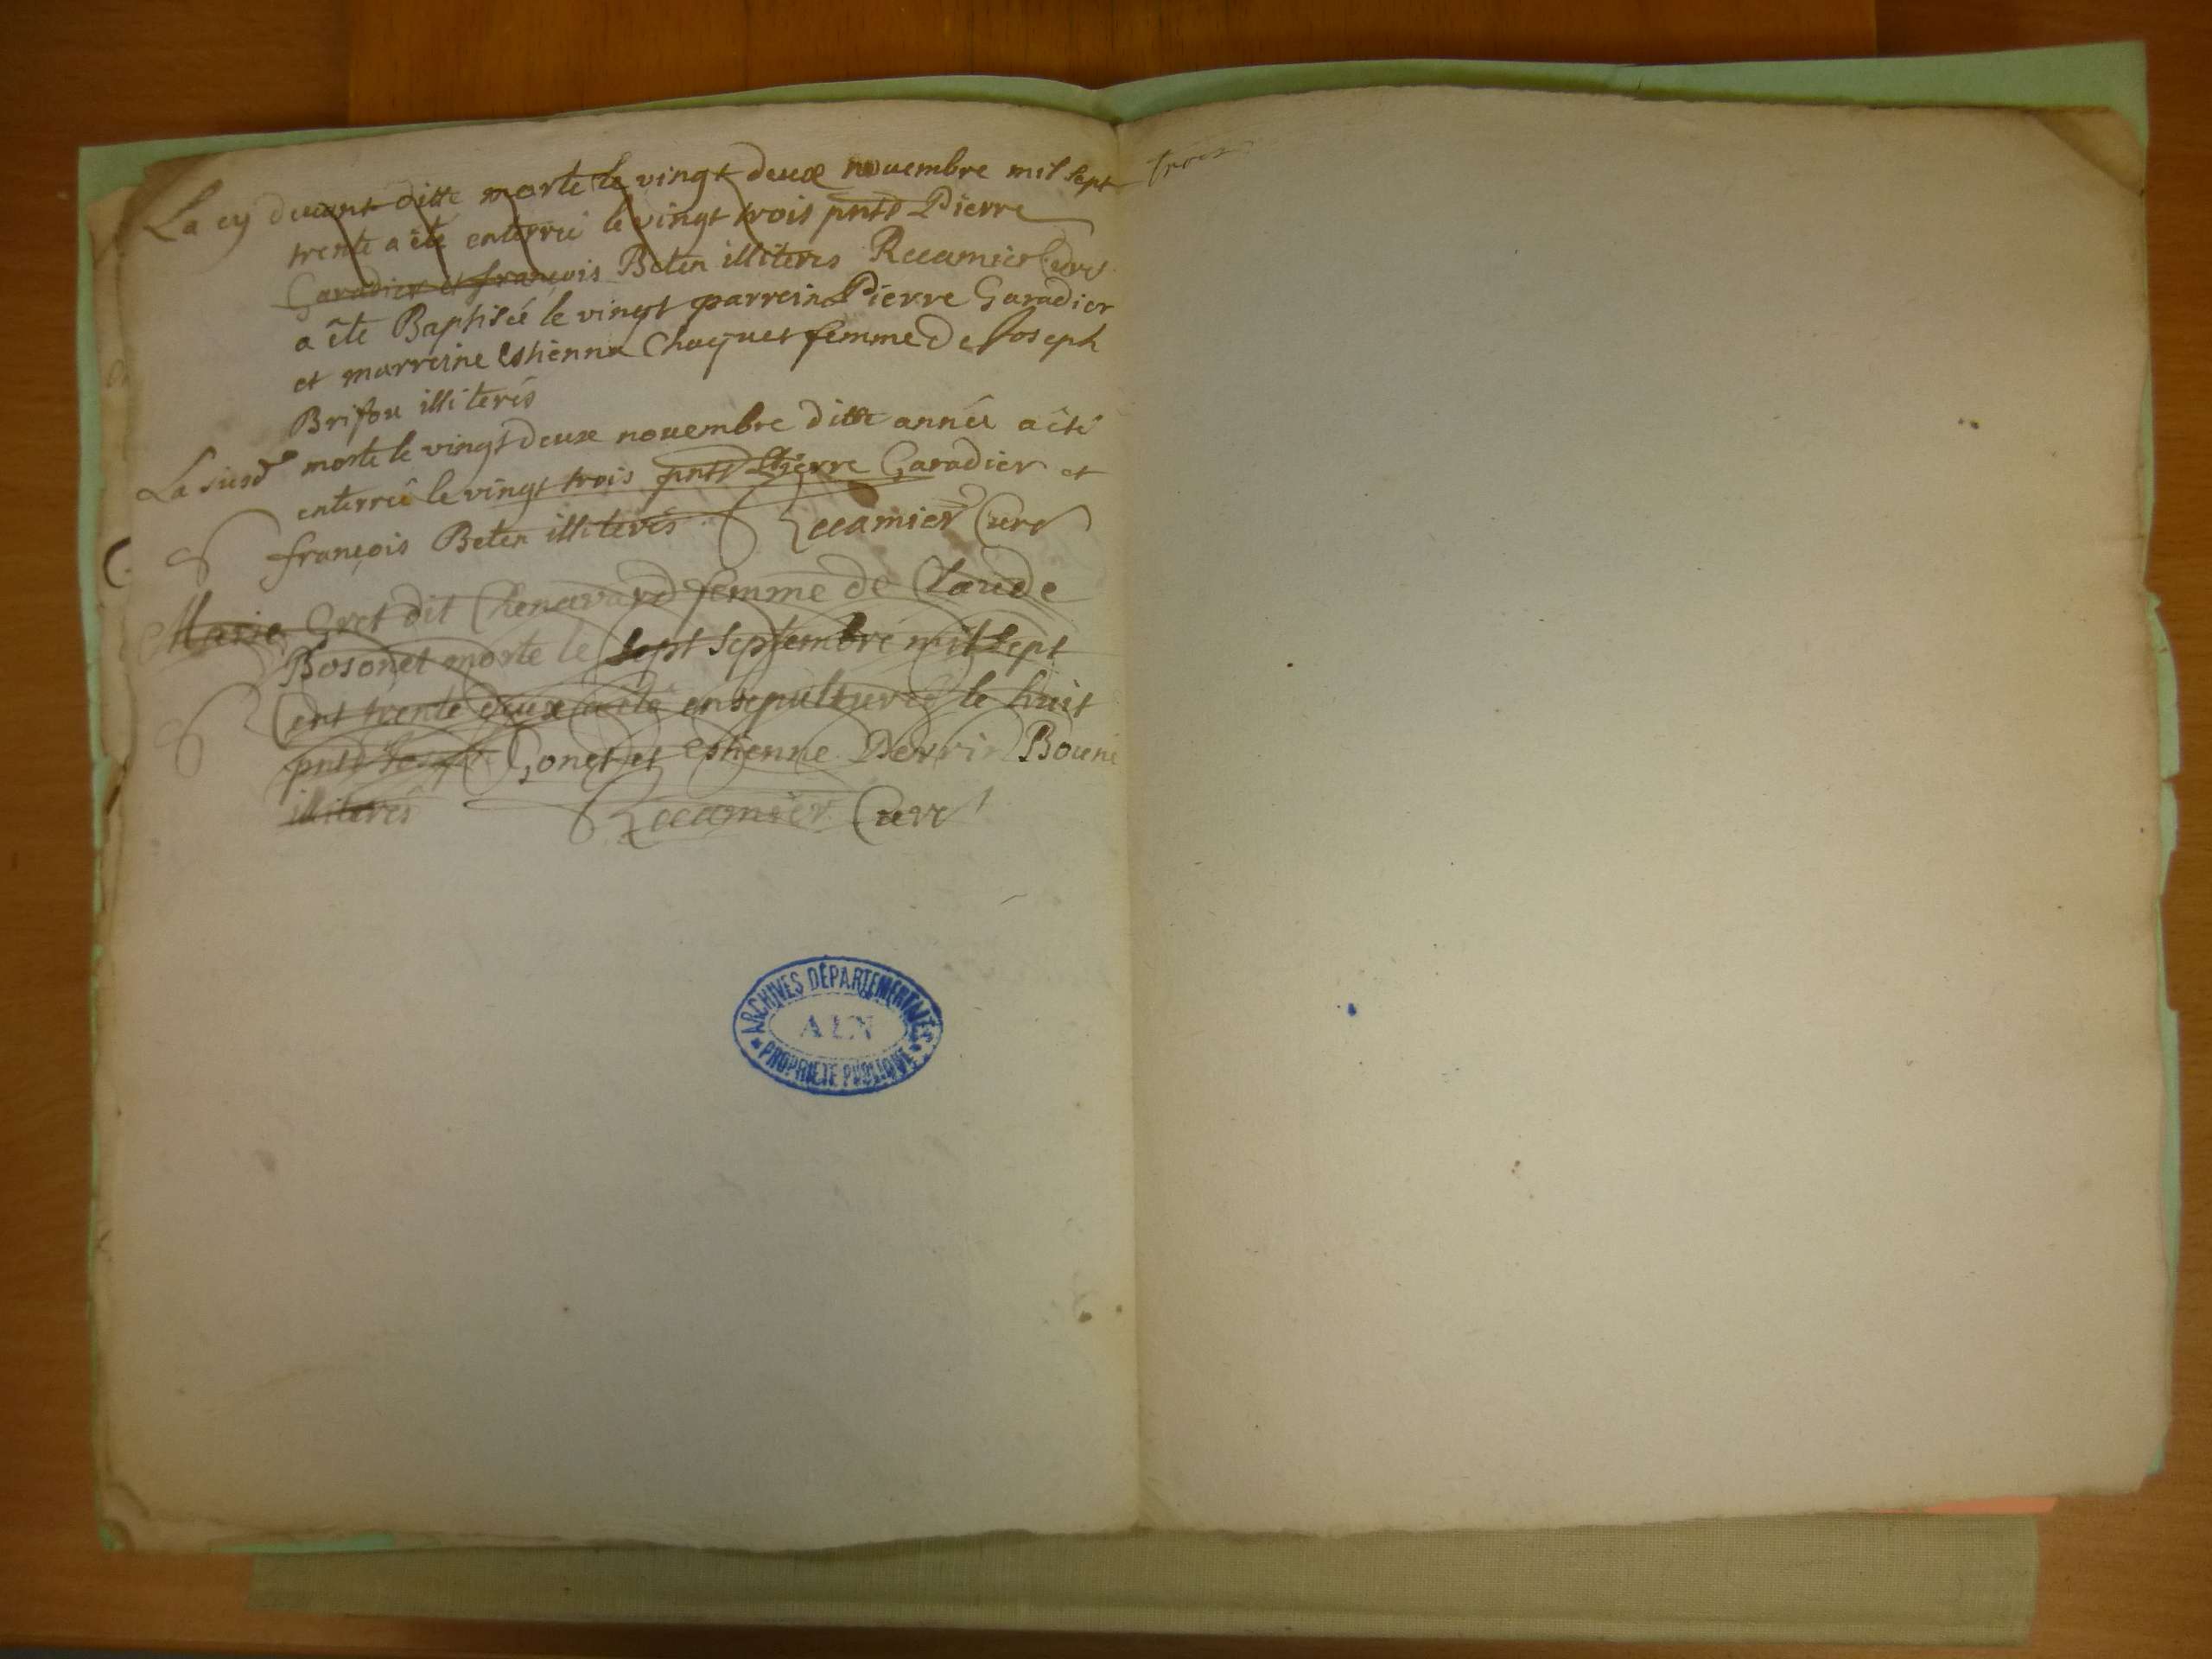 La cy devant ditte morte le vingt deux novembre mil sept
trente a êté enterrée le vingt trois pnts Pierre
Garadier et françois Beten illiterés Recamier Curé
a ête Baptisée le vingt parrein Pierre Garadier
et marreine Estienna Chaquet femme de Joseph
Brifou illiterés
La susd morte le vingt deux novembre ditte année a êté
enterreé le vingt trois pnts Pierre Garadier et
françois Beten illiterés Recamier Curé
Marie Gret dit Chenavard femme de Claude
Bosonet morte le sept septembre mil sept
Cent trente deux a êté ensepulturée le huit
pnts Gonet et Estienne Perrin Bouni
illiterés Recamier Curé
ARCHIVES DÉPARTEMENTALES
AIN
PROPRIETE PUBLIQUE